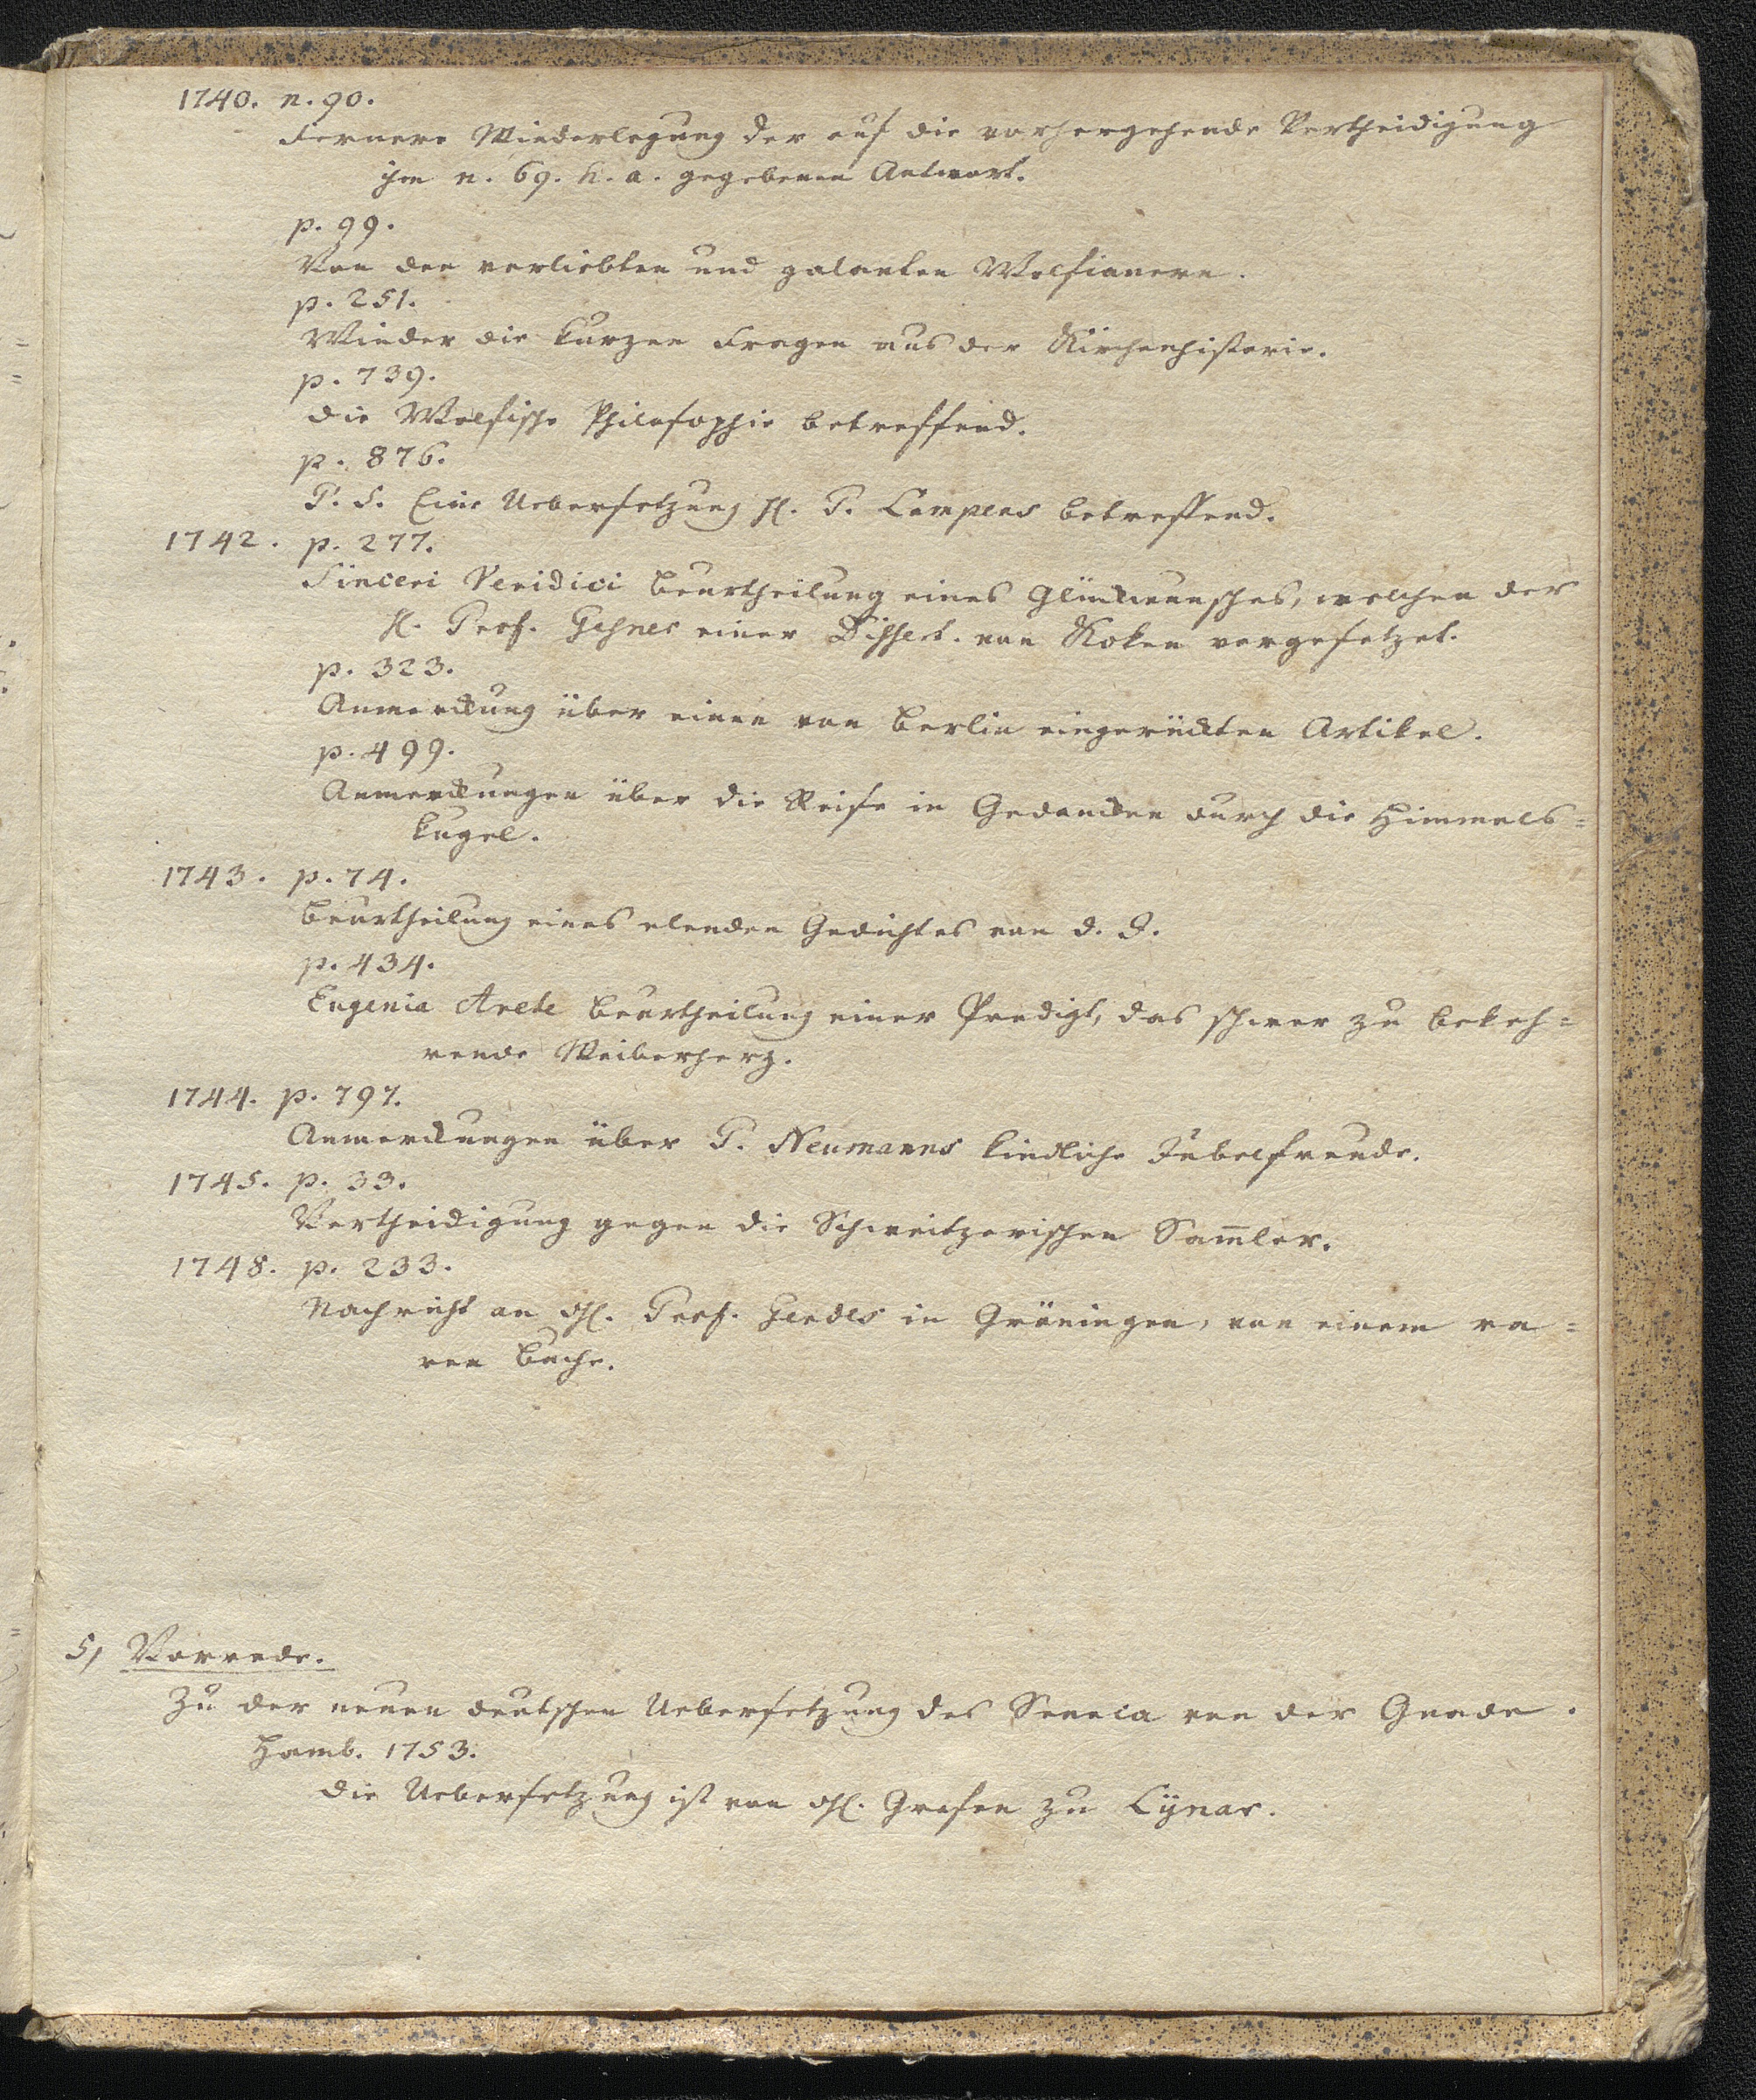 1740. n. 90.
Fernere Wiederlegung der auf die vorhergehende Vertheidigung
ihm n. 69. h. a. gegebenen Antwort.
p. 99.
Von den verliebten und galanten Wolfianern.
p. 251.
Wieder die kurzen Fragen aus der Kirchenhistorie.
p. 739.
Die Wolfische Philosophie betreffend.
p. 876.
P. S. Eine Uebersetzung H. P. Lampens betreffend.
1742. p. 277.
Sinceri Veridici Beurtheilung eines Glückwunsches, welchen der
H. Prof. Gesner einer Dissert. von Koken vorgesetzet.
p. 323.
Anmerckung über einen von Berlin eingerückten Artikel.
p. 499.
Anmerckungen über die Reise in Gedancken durch die Himmels=
kugel.
1743. p. 74.
Beurtheilung eines elenden Gedichtes von d. J.
p. 434.
Eugenia Arete Beurtheilung einer Predigt, das schwer zu bekeh=
rende Weiberherz.
1744. p. 797.
Anmerckungen über P. Neumanns kindliche Jubelfreude.
1745. p. 33.
Vertheidigung gegen die Schweitzerischen Sam̅ler.
1748. p. 233.
Nachricht an H. Prof. Gerdes in Gröningen, von einem ra=
ren Buche.
5, Vorrede.
Zu der neuen deutschen Uebersetzung des Seneca von der Gnade.
Hamb. 1753.
Die Uebersetzung ist von H. Grafen zu Lÿnar.